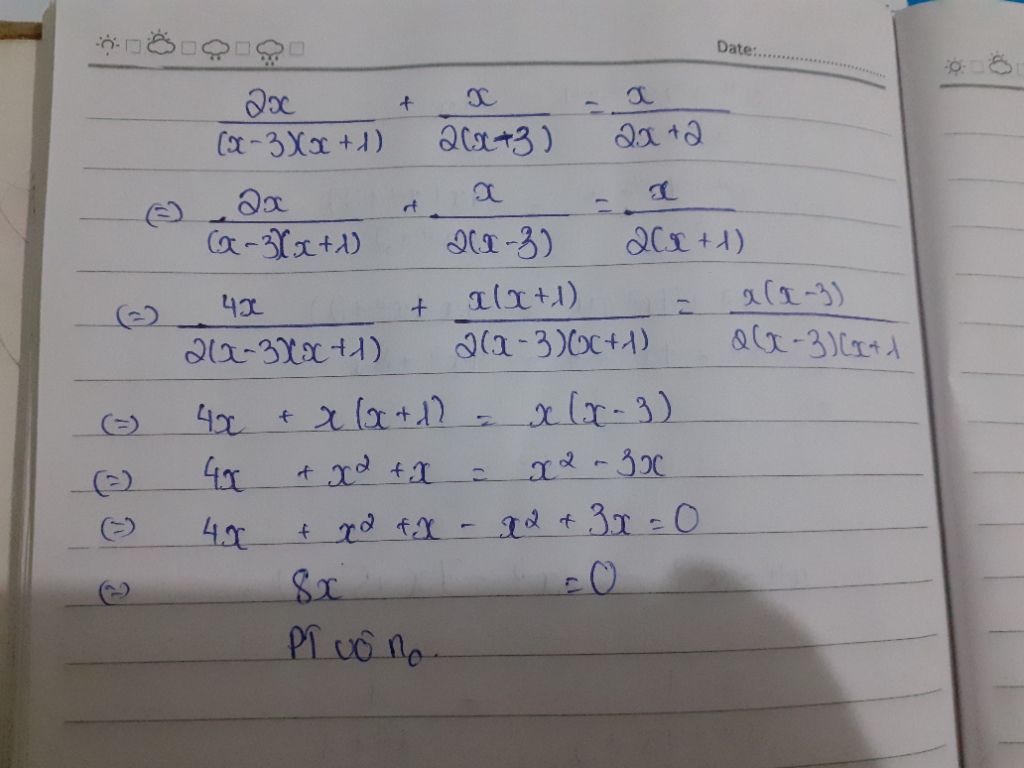 Date:
2x/((x-3)(x+1)) + x/(2(x+3)) = x/(2x+2)
(=) 2x/((x-3)(x+1)) + x/(2(x-3)) = x/(2(x+1))
(=) 4x/(2(x-3)(x+1)) + x(x+1)/(2(x-3)(x+1)) = x(x-3)/(2(x-3)(x+1
(=) 4x + x(x+1) = x(x-3)
(=) 4x + x² + x = x² - 3x
(=) 4x + x² + x - x² + 3x = 0
(=) 8x = 0
PT vô n₀.